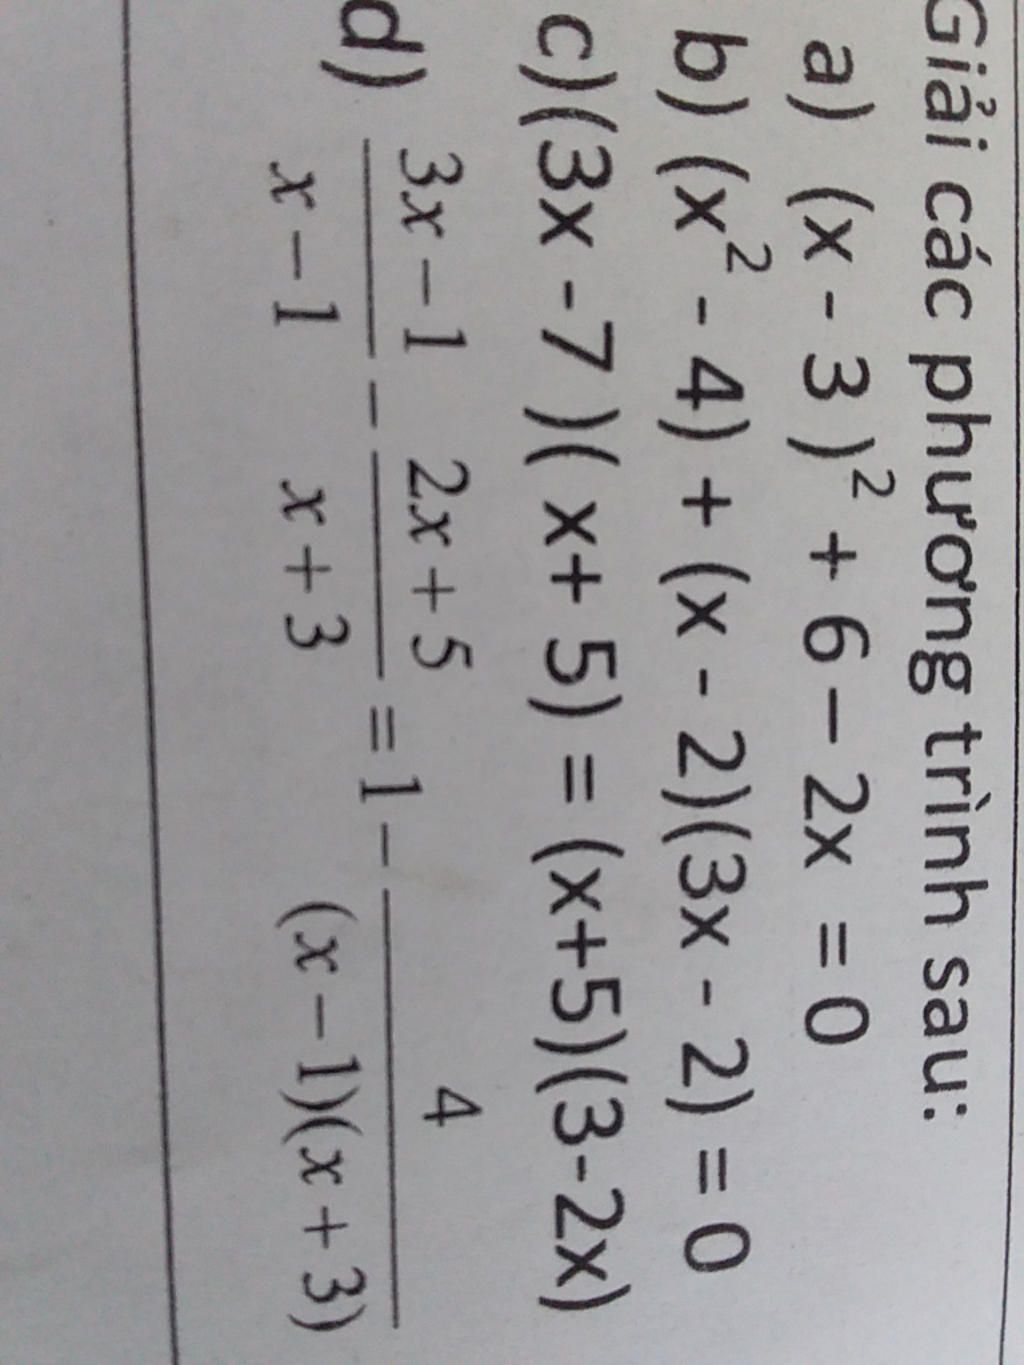 Giải các phương trình sau:
a) (x - 3 )² + 6 – 2x = 0
b) (x² - 4) + (x - 2)(3x - 2) = 0
c)(3x -7 )( x+ 5) = (x+5)(3-2x)
d) \frac{3x-1}{x-1} - \frac{2x+5}{x+3} = 1 - \frac{4}{(x-1)(x+3)}